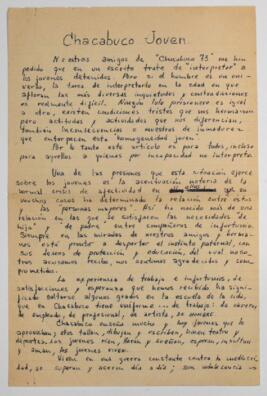 Chacabuco Joven
Nuestros amigos de "Chacabuco 73" me han
pedido que en un escrito trate de "interpretar" a
los jóvenes detenidos. Pero si el hombre es un uni-
verso, la tarea de interpretarlo en la edad en que
afloran las más diversas inquietudes y contradicciones
es realmente difícil. Ningún joven prisionero es igual
a otro, existen condiciones tristes que nos hermanan
pero actitudes y actividades que nos diferencian,
también inconsecuencias o muestras de inmadurez
que entorpecen esta "homogeneidad joven".
Por lo tanto este artículo es para todos, incluso
para aquellos a quienes por incapacidad no interpreto.
Una de las presiones que esta situación ejerce
sobre los jóvenes es la acentuación notoria de la
normal crisis de afectividad en ellos que en
muchos casos ha determinado la relación entre estos
y las personas mayores. Así ha nacido más de una
relación en las que se satisfacen las necesidades "de
hijo" y "de padre" entre compañeros de infortunio.
Siempre en las miradas de nuestros amigos y herma-
nos está pronto a despertar el instinto paternal, con
sus deseos de protección y educación, del cual noso-
tros acusamos recibo, nos sentimos agradecidos y com-
prometidos.
La experiencia de trabajo e infortunios, de
satisfacciones y esperanza que hemos recibido ha signi-
ficado saltarse algunos grados de la escuela de la vida,
que en Chacabuco tiene uniforme... de trabajo: de obrero,
de empleado, de profesional, de artista, de hombre.
Chacabuco enseña mucho y hay jóvenes que lo
aprovechan; ellos tallan, dibujan y escriben, hacen teatro y
deportes. Los jóvenes ríen, lloran y sueñan, esperan, insultan
y aman, los jóvenes viven.
Viven en una guerra constante contra la mediocri-
dad, se superan y acercan día a día; son adolescencia